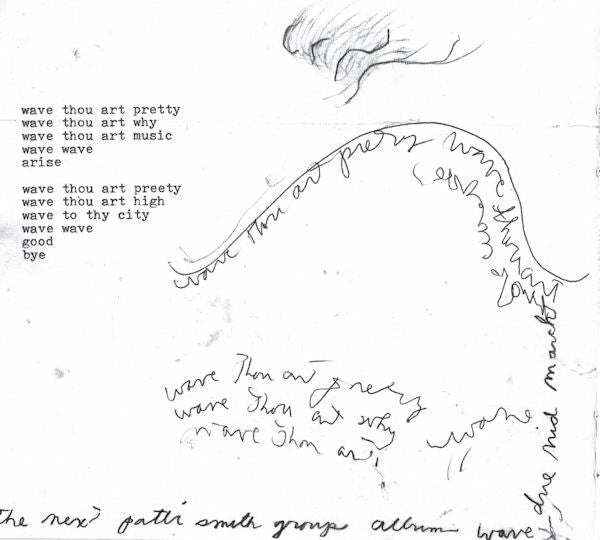 wave thou art pretty
wave thou art why
wave thou art music
wave wave
arise
wave thou art preety
wave thou art high
wave to thy city
wave wave
good
bye
wave thou art pretty wave thou art
wave thou art pretty
wave thou art why
wave thou art
wave
the next patti smith group album wave
due mid march